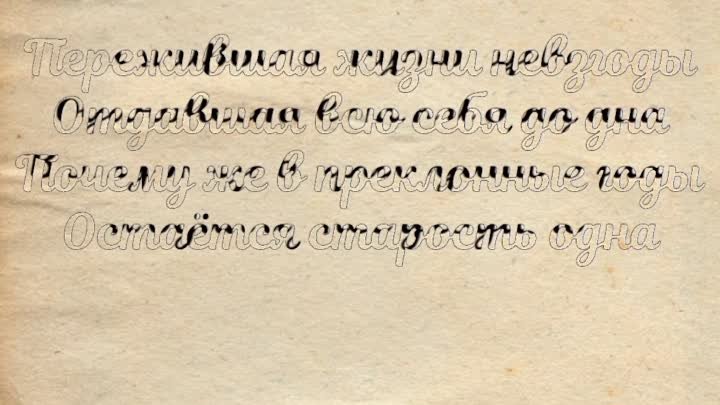 Пережившая жизни невзгоды
Отдавшая всю себя до дна
Почему же в преклонные годы
Остаётся старость одна